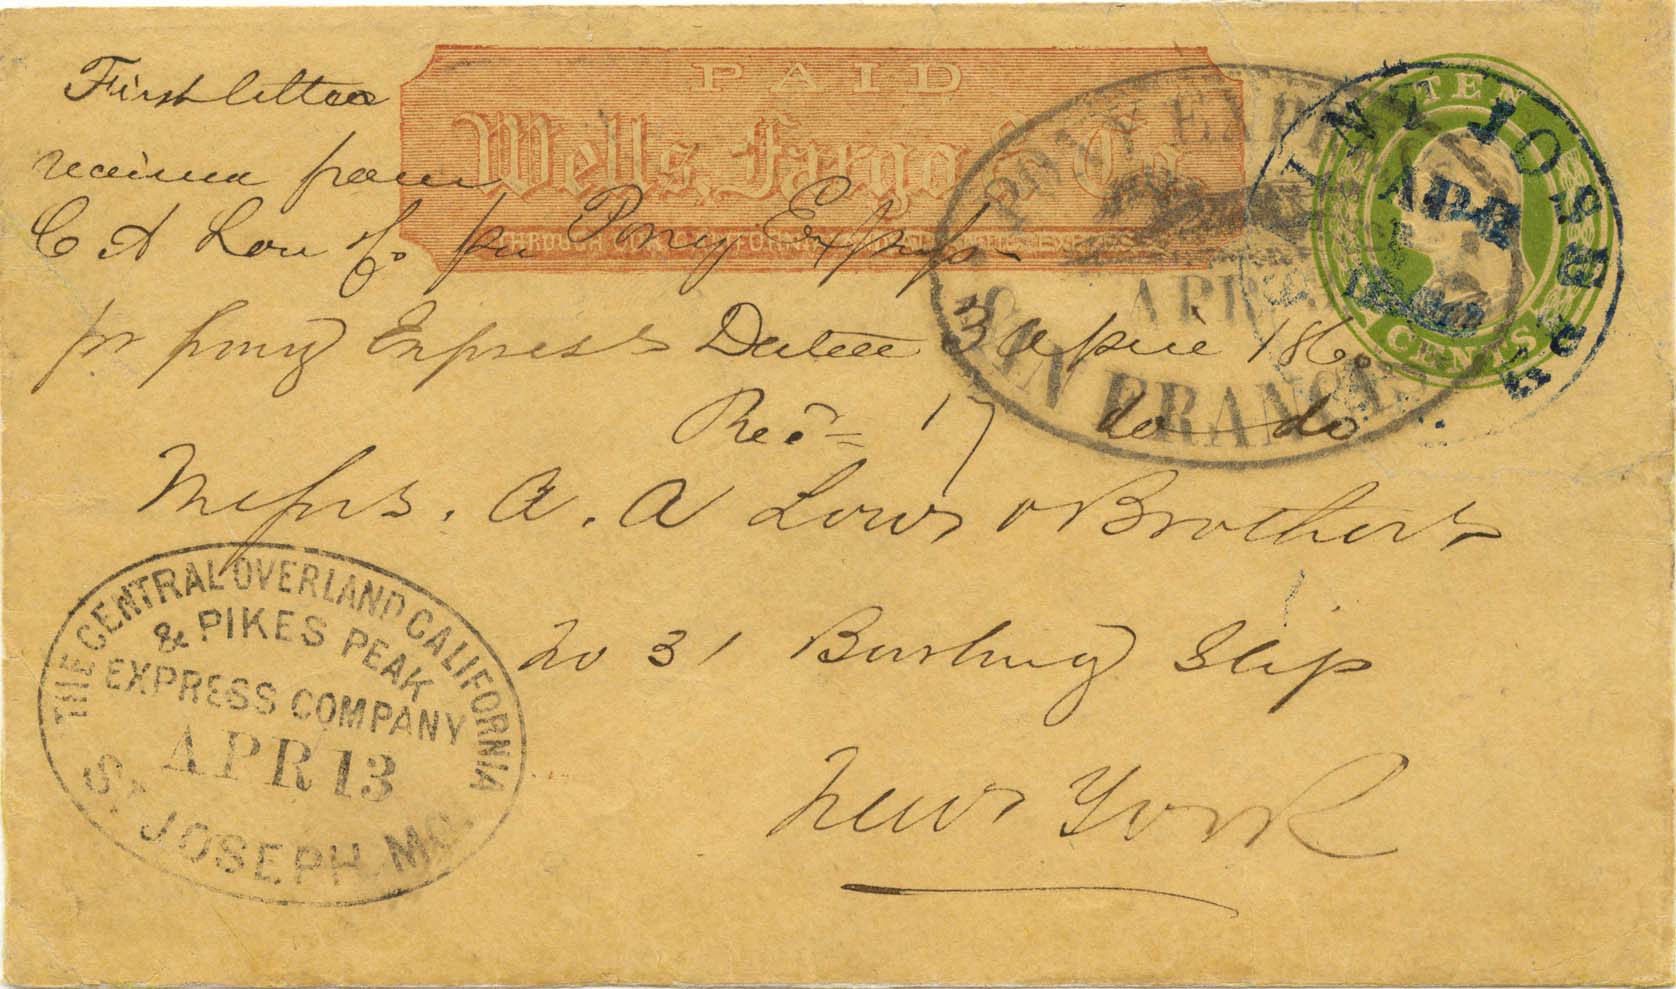 PAID
Wells, Fargo & Co.
THROUGH OUR CALIFORNIA EXPRESS
First letter
received from
C A Low & Co per Pony Express
pr pony Express Dated 3 April 1860
Rec'd 17 do do
Messrs. A. A Low & Brothers
No 31 Burling Slip
New York
PONY EXPRESS
APR 3
SAN FRANCISCO
ST JOSEPH
APR
TEN
CENTS
THE CENTRAL OVERLAND CALIFORNIA
& PIKES PEAK
EXPRESS COMPANY
APR 13
ST. JOSEPH. MO.